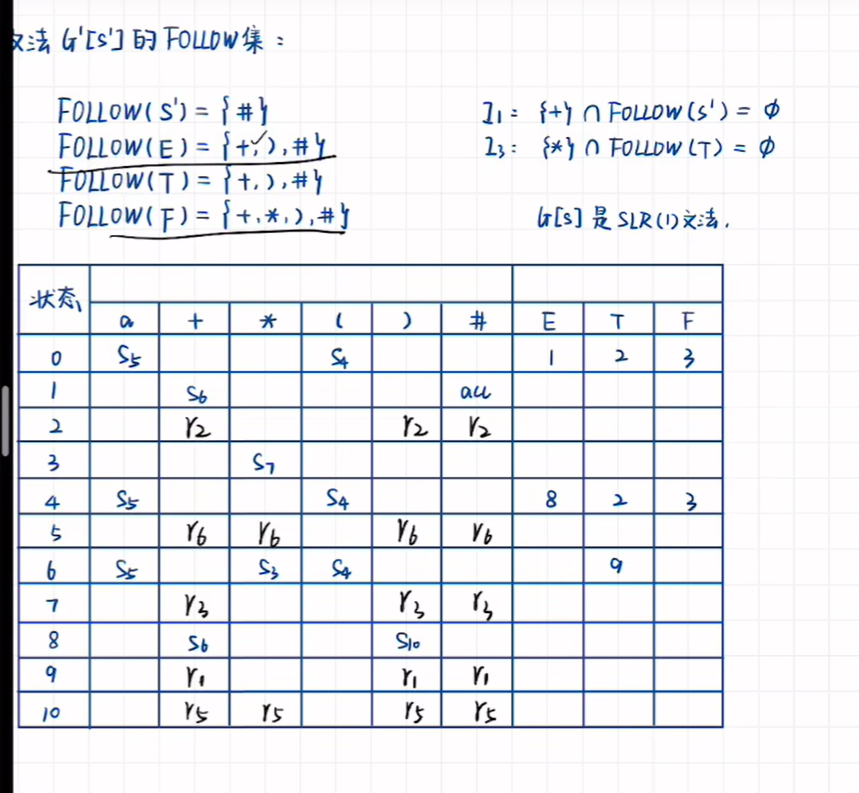 文法 G'[S'] 的 FOLLOW 集：
FOLLOW(S') = {#}
FOLLOW(E) = {+,),#}
FOLLOW(T) = {+,),#}
FOLLOW(F) = {+,*,),#}
I₁： {+} ∩ FOLLOW(S') = ϕ
I₃： {*} ∩ FOLLOW(T) = ϕ
G[S] 是 SLR(1) 文法.
状态 a + * ( ) # E T F
0 S₅ S₄ 1 2 3
1 S₆ acc
2 r₂ r₂ r₂
3 S₇
4 S₅ S₄ 8 2 3
5 r₆ r₆ r₆ r₆
6 S₅ S₃ S₄ 9
7 r₃ r₃ r₃
8 S₆ S₁₀
9 r₁ r₁ r₁
10 r₅ r₅ r₅ r₅